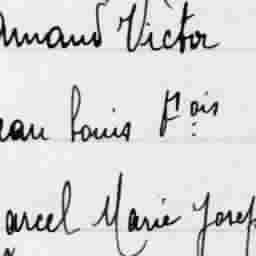 rmand Victor
ean Louis F.ois
arcel Marie Josep